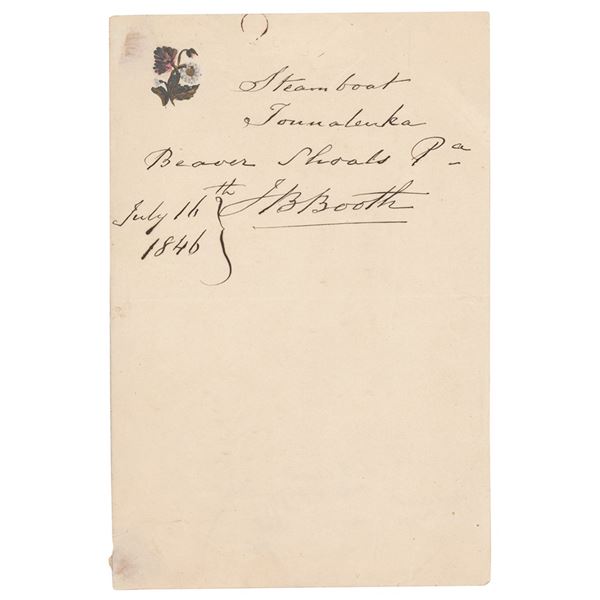 Steamboat
Tounaleuka
Beaver Shoals Pa
July 16th
1846
JBBooth